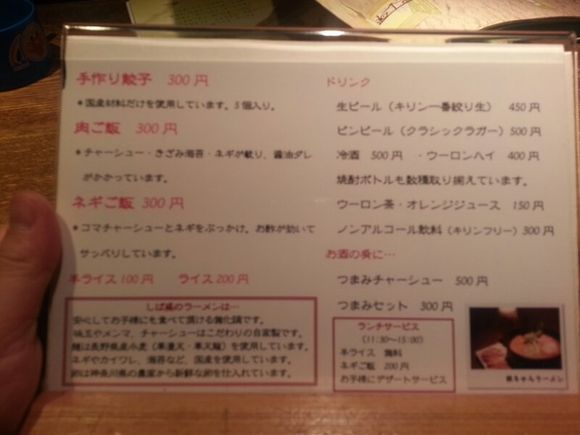 手作り餃子 300円
*国産材料だけを使用しています。5個入り。
肉ご飯 300円
*チャーシュー・きざみ海苔・ネギが載り、醤油ダレ
がかかっています。
ネギご飯 300円
*コマチャーシューとネギをぶっかけ。お酢が効いて
サッパリしています。
半ライス100円 ライス200円
のラーメンは…
安心してお子様にも食べて頂ける無化調です。
味玉やメンマ、チャーシューはこだわりの自家製です。
麺は長野県産小麦
を使用しています。
ネギやカイワレ、海苔など、国産を使用しています。
卵は神奈川県の農家から新鮮な卵を仕入れています。
ドリンク
生ビール(キリン一番絞り生) 450円
ビンビール(クラシックラガー)500円
冷酒 500円 ・ウーロンハイ 400円
焼酎ボトルも数種取り揃えています。
ウーロン茶・オレンジジュース 150円
ノンアルコール飲料(キリンフリー)300円
お酒の肴に…
つまみチャーシュー 500円
つまみセット 300円
ランチサービス
(11:30~15:00)
半ライス 無料
ネギご飯 200円
お子様にデザートサービス